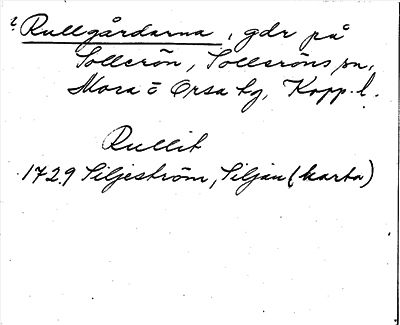 ? Rullgårdarna, gdr på
Sollerön, Solleröns sn,
Mora o Orsa tg, Kopp. l.
Rullit
1729 Siljeström, Siljan (karta)